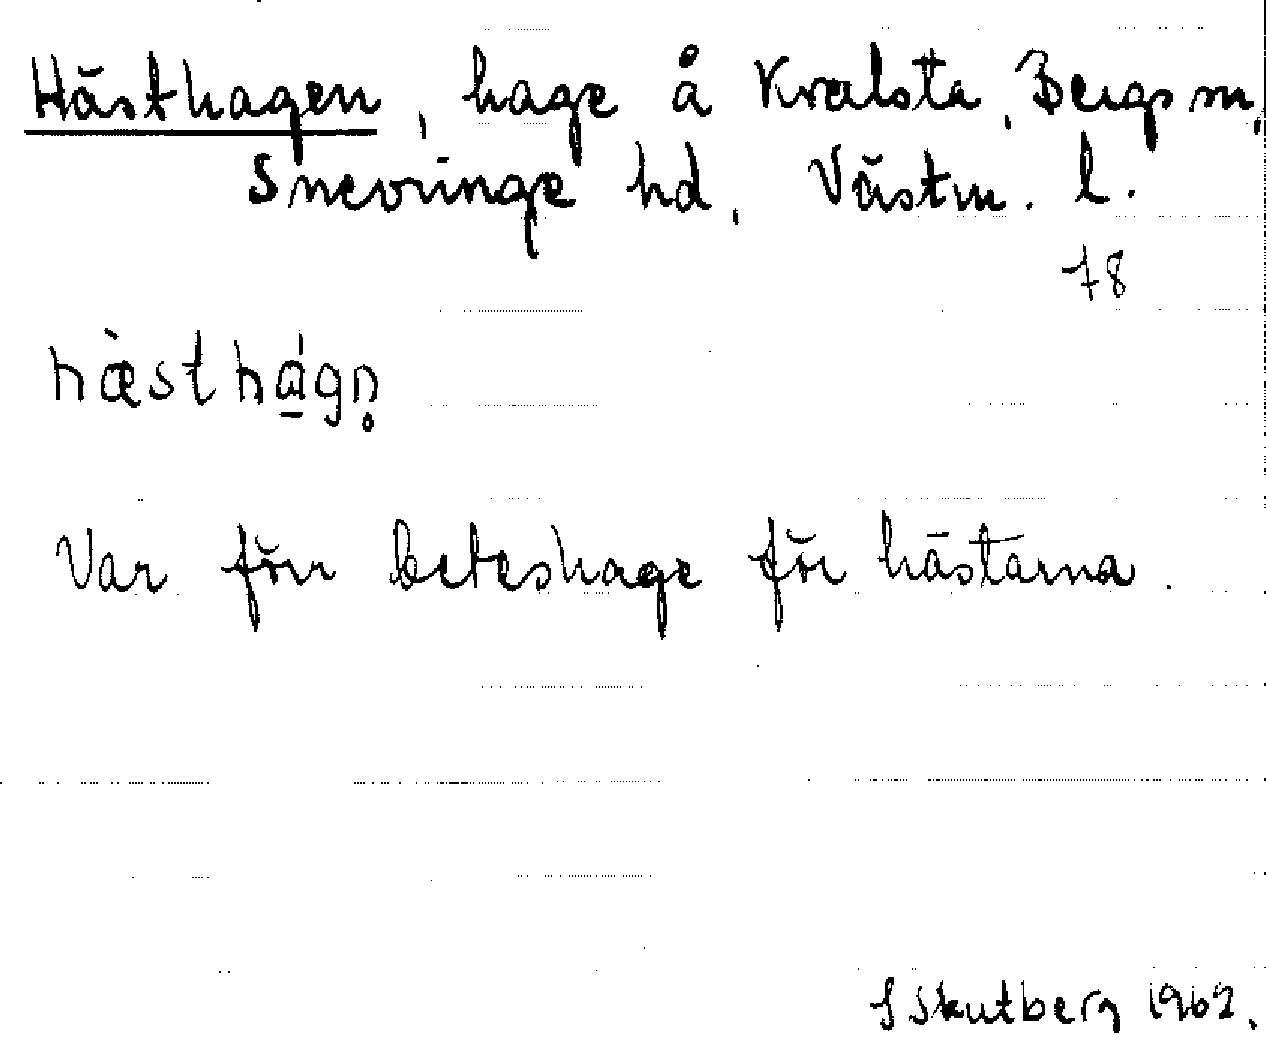 Hästhagen, hage å Kvalsta, Bergs sn,
Snevringe hd, Västm. l.
78
hæ̀sthágn̥
Var förr beteshage för hästarna.
S Skutberg 1962.